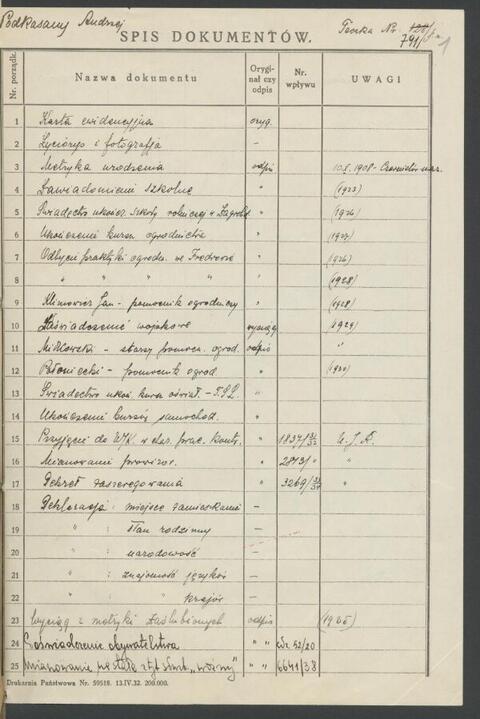 Podkasany Andrzej
Teczka Nr 791/
1
SPIS DOKUMENTÓW.
Nr. porządk. Nazwa dokumentu Orygi- nał czy odpis Nr. wpływu UWAGI
1 Karta ewidencyjna oryg.
2 Życiorys i fotografja —
3 Metryka urodzenia odpis 10.X.1908 -
4 Zawiadomienie szkolne " (1923)
5 Świadectwo ukończ. szkoły rolniczej w " (1926)
6 Ukończenie kursu ogrodnictwa " (1927)
7 Odbycie praktyki ogrodn. we Fredrowie " (1926)
8 " " " " " (1928)
9 Klimowicz Jan - pomocnik ogrodniczy " (1928)
10 Zaświadczenie wojskowe wyciąg (1929)
11 Mikłowski - starszy pomocn. ogrod. odpis "
12 - pomocnik ogrod. " (1930)
13 Świadectwo ukoń. kursu oświat. - T.S.L. "
14 Ukończenie kursów samochod. "
15 Przyjęcie do w char. prac. kontr. " 1837/31/32 U.J.K.
16 Mianowanie prowizor. " 2843/" "
17 Dekret zaszeregowania " 3269/33/34 "
18 Deklaracja: miejsce zamieszkania —
19 " : stan rodzinny —
20 " : narodowość —
21 " : znajomość języków —
22 " : " krajów —
23 Wyciąg z metryki zaślubionych odpis (1935)
24 Poświadczenie obywatelstwa " " 52/20
25 Mianowanie na stałe etat. st. "woźny" " " 6641/38
Drukarnia Państwowa Nr. 59518. 13.IV.32. 200.000.